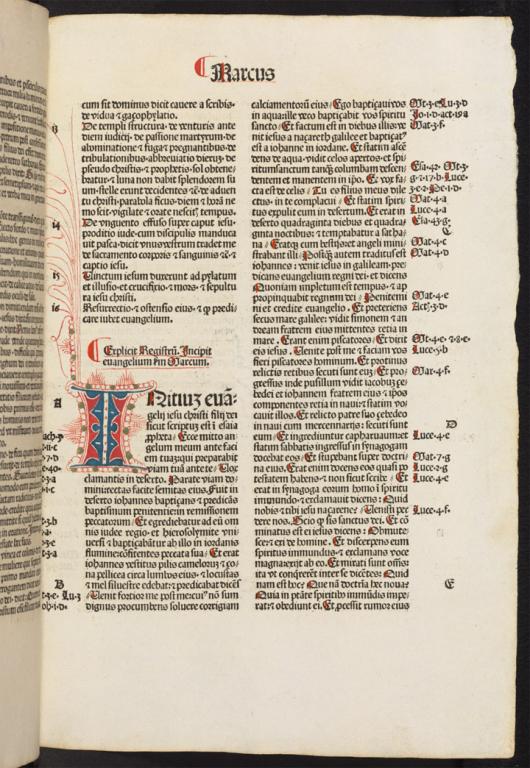 Marcus
cum sit dominus dicit cauere a scribis·
de vidua ⁊ gazophylatio.
13
De templi structura· de venturis ante
diem iudicij· de passione martyrum· de
abominatione ⁊ fuga· ⁊ pregnantibus· de
tribulationibus· abbreuiatio dierum· de
pseudo christis· ⁊ prophetis· sol obtene/
bratur· ⁊ luna non dabit splendorem su
um· stelle erunt decidentes ⁊ de aduen
tu christi· parabola ficus· diem ⁊ horā ne
mo scit· vigilate ⁊ orate nescitis tempus.
14
De vnguento effuso super caput iesu·
proditio iude· cum discipulis manduca
uit pasca· dicit vnus vestrum tradet me
de sacramento corporis ⁊ sanguinis ⁊
captio iesu.
15
Vinctum iesum duxerunt ad pylatum
et illusio· et crucifixio· mors· ⁊ sepultu
ra iesu christi.
16
Resurrectio· ⁊ ostensio eius· ⁊ ꝙ predi/
care iubet euangelium.
Explicit Registrū. Incipit
euangelium scdm Marcum.
A
INitium euā-
gelij iesu christi filij dei
sicut scriptum est ī esaia
ꝓpheta· Ecce mitto an
gelum meum ante faci
em tuam· qui preparabit
viam tuā ante te· Vox
clamantis in deserto. Parate viam do/
mini· rectas facite semitas eius. Fuit in
deserto iohannes baptizans· ⁊ predicās
baptismum penitentie· in remissionem
peccatorum. Et egrediebatur ad eū om
nis iudee regio· et hierosolymite vni/
uersi· ⁊ baptizabātur ab illo in iordanis
flumine· cōfitentes peccata sua. Et erat
iohannes vestitus pilis cameloruʒ ⁊ zo
na pellicea circa lumbos eius· ⁊ locustas
B
⁊ mel siluestre edebat· ⁊ predicabat dicēs
Venit fortior me post me· cuiꝰ nō sum
dignus procumbens soluere corrigiam
calciamentorū eius· Ego baptizaui vos
in aqua· ille vero baptizabit vos spiritu
sancto· Et factum est in diebus illis· ve
nit iesus a nazareth galilee· et baptizat
est a iohanne in iordane. Et statim ascē
dens de aqua· vidit celos apertos· et spi
ritum sanctum tanqʒ columbam descen
dentem et manentem in ipso. Et vox fa
cta est de celis· Tu es filius meus dile
ctus· in te complacui· Et statim spiri/
tus expulit eum in desertum. Et erat in
deserto quadraginta diebus et quadra/
ginta noctibus· ⁊ temptabatur a satha/
na· Eratqʒ cum bestijs· et angeli mini/
strabant illi· Postqʒ autem traditus est
iohannes· venit iesus in galileam· pre/
dicans euangelium regni dei· et dicens
Quoniam impletum est tempus· ⁊ ap
propinquabit regnum dei· Penitemi
ni et credite euangelio. Et preteriens
secus mare galilee· vidit simonem ⁊ an
dream fratrem eius mittentes retia in
mare. Erant enim piscatores· Et dixit
eis iesus· Venite post me ⁊ faciam vos
fieri piscatores hominum. Et protinus
relictis retibus secuti sunt eum· Et pro/
gressus inde pusillum vidit iacobum ze/
bedei et iohannem fratrem eius· ⁊ ipsos
componentes retia in naui· ⁊ statim vo/
cauit illos. Et relicto patre suo zebedeo
in naui cum mercennarijs· secuti sunt
eum· Et ingrediuntur capharnaum· et
statim sabbatis ingressus in synagogam
docebat eos· Et stupebant super doctri/
na eius. Erat enim docens eos quasi po
testatem habens· ⁊ non sicut scribe· Et
erat in synagoga eorum homo ī spiritu
immundo· ⁊ exclamauit dicens· Quid
nobis ⁊ tibi iesu nazarene· Venisti per
dere nos. Scio ꝙ sis sanctus dei. Et cō
minatus est ei iesus dicens· Obmute/
sce· ⁊ exi de homine. Et discerpens eum
spiritus immundus· ⁊ exclamans voce
magna· exijt ab eo. Et mirati sunt oēs·
ita vt conqrerēt inter se dicētes· Quid
nam est hoc· Que nā doctrīa hec noua·
Quia in ptāte spiritibꝰ immūdis impe
rat· ⁊ obediunt ei. Et ꝓcessit rumor eius
Mt·3·c Lu·3·d
Jo·1·d· act·19·a
Mat·3·f·
Mat·4·a
Luce·4·a
C
Mat·4·c
Mat·4·d
Mat·4·e
Luce·5·b
Mat·4·f·
D
Luce·4·e
Mat·7·g
Luce·4·e
Luce·4·f·
E